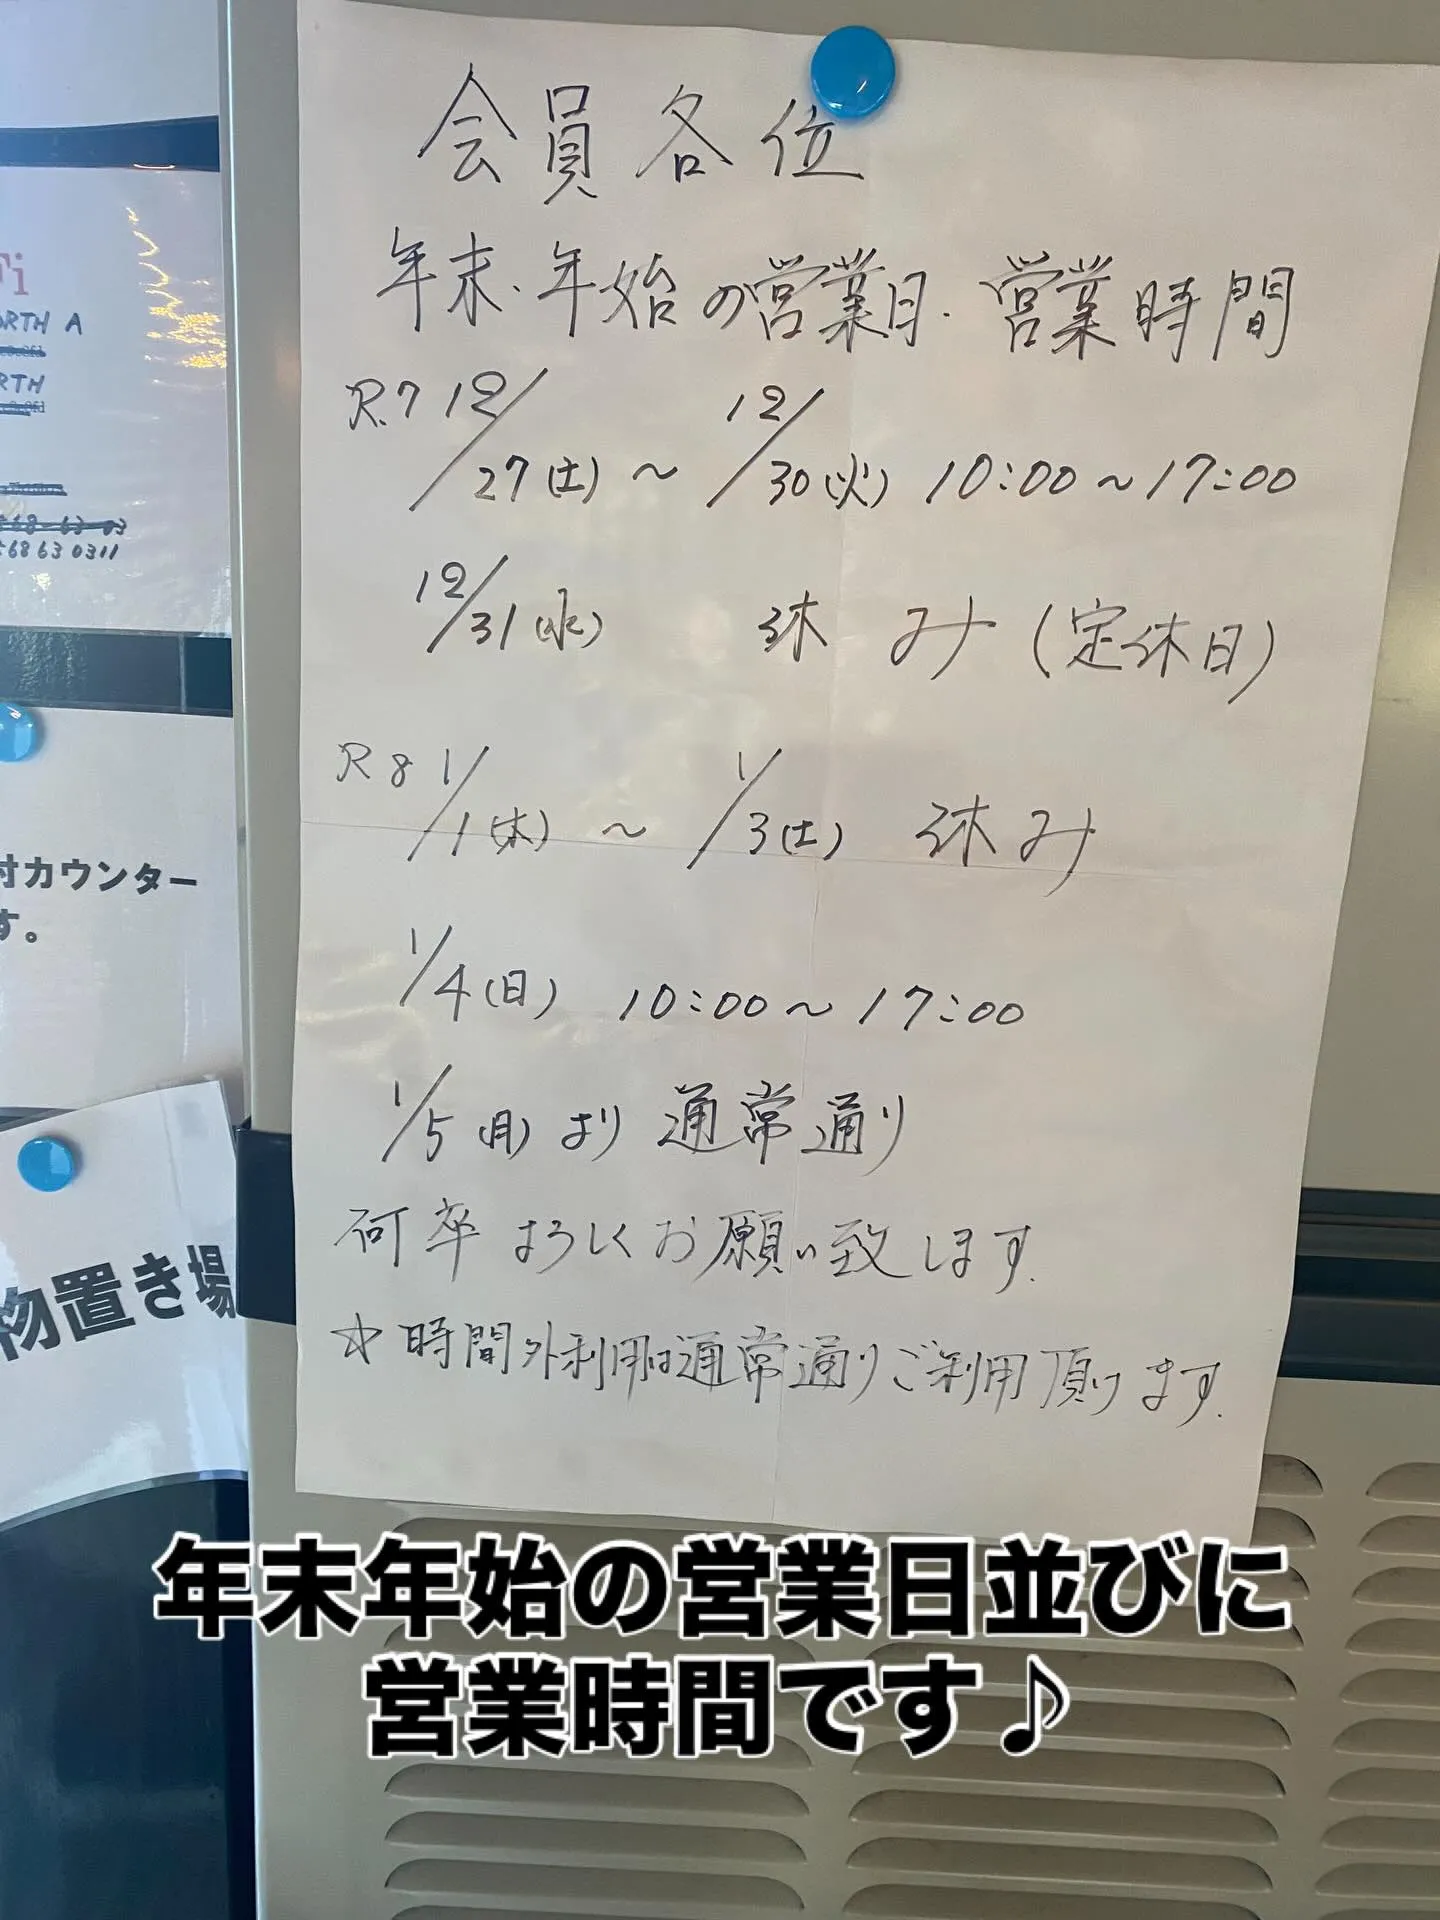 会員各位
年末.年始の営業日.営業時間
R.7 12/27(土)～12/30(火) 10:00～17:00
12/31(水) 休み(定休日)
R8 1/1(木)～1/3(土) 休み
1/4(日) 10:00～17:00
1/5(月)より通常通り
何卒よろしくお願い致します.
☆時間外利用は通常通りご利用頂けます.
ORTH A
RTH
568630311
付カウンター
す。
物置き場
年末年始の営業日並びに
営業時間です♪